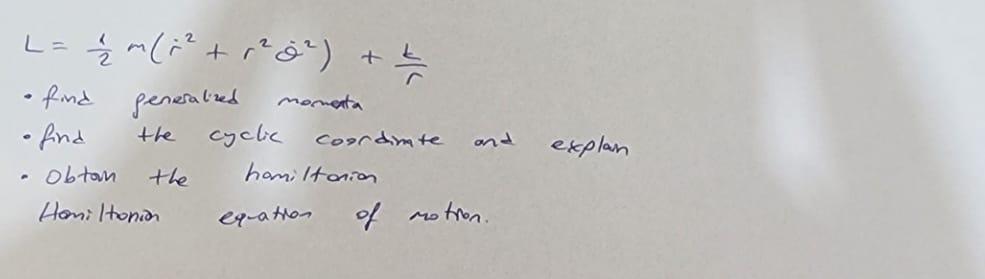 L = 1/2 m(ṙ² + r²θ̇²) + k/r
• find generalized momenta
• find the cyclic coordinate and explain
• Obtain the hamiltonian
Hamiltonian equation of motion.